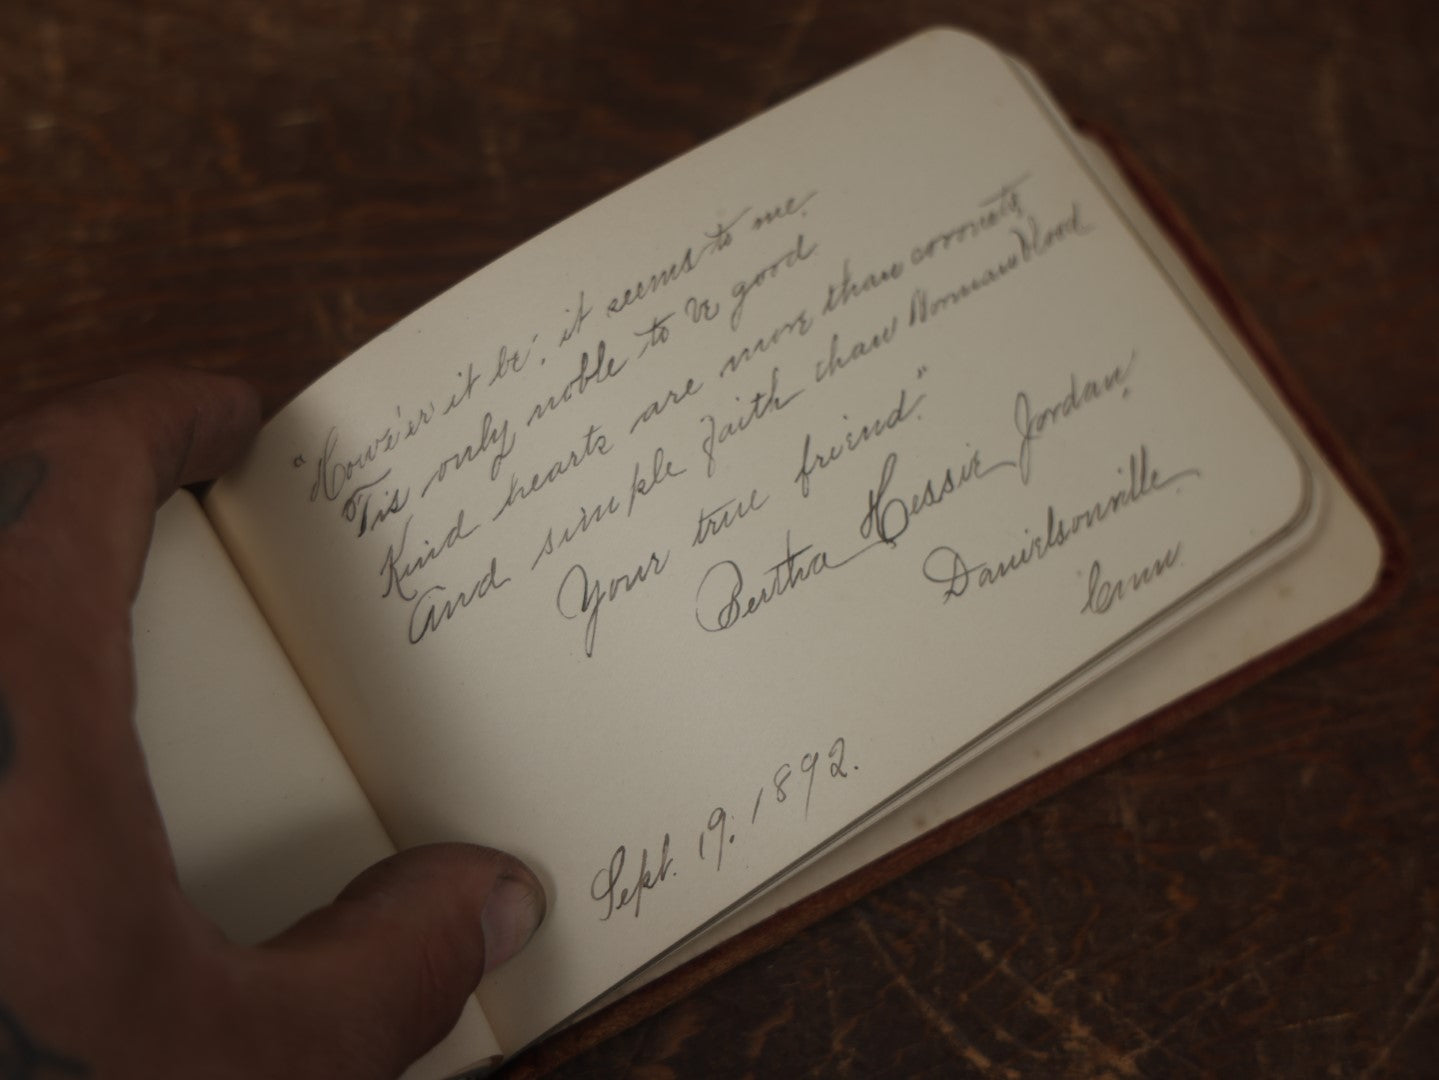 "Howe'er it be, it seems to me,
'Tis only noble to be good.
Kind hearts are more than coronets,
And simple faith than Norman blood
Your true friend."
Bertha Hessie Jordan,
Danielsonville,
Conn.
Sept. 19. 1892.